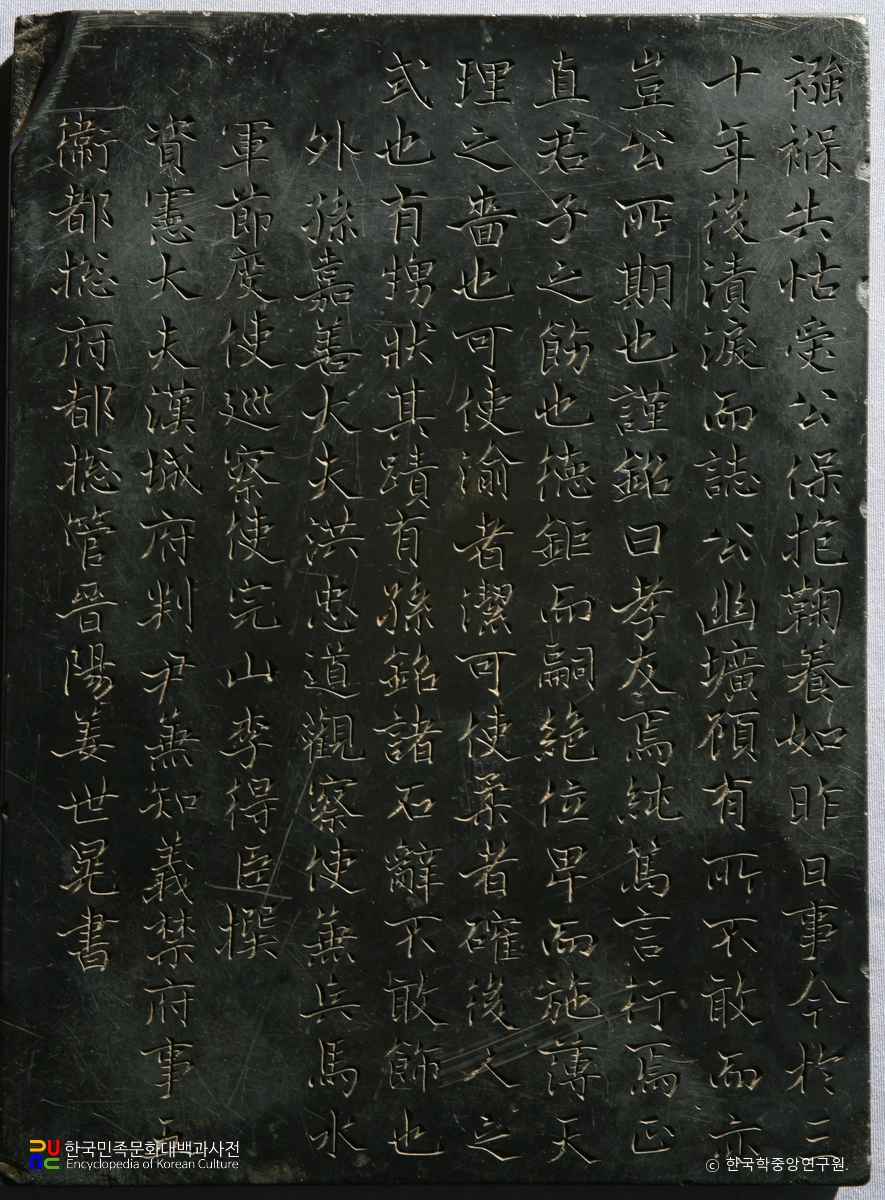 襁褓失怙受公保抱鞠養如昨日事今於三
十年後漬淚而誌公幽壙碩有所不敢而亦
豈公所期也謹銘曰孝友焉純篤言行焉正
直君子之飭也德鉅而嗣絶位卑而施薄天
理之嗇也可使渝者潔可使柔者確後人之
式也有甥狀其蹟有孫銘諸石辭不敢飾也
外孫嘉善大夫洪忠道觀察使兼兵馬水
軍節度使巡察使完山李得臣撰
資憲大夫漢城府判尹兼知義禁府事五
衛都摠府都摠管晉陽姜世晃書
한국민족문화대백과사전
Encyclopedia of Korean Culture
© 한국학중앙연구원.